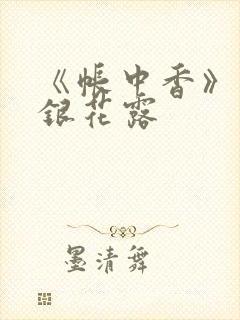 《帐中香》
银花露
墨清舞